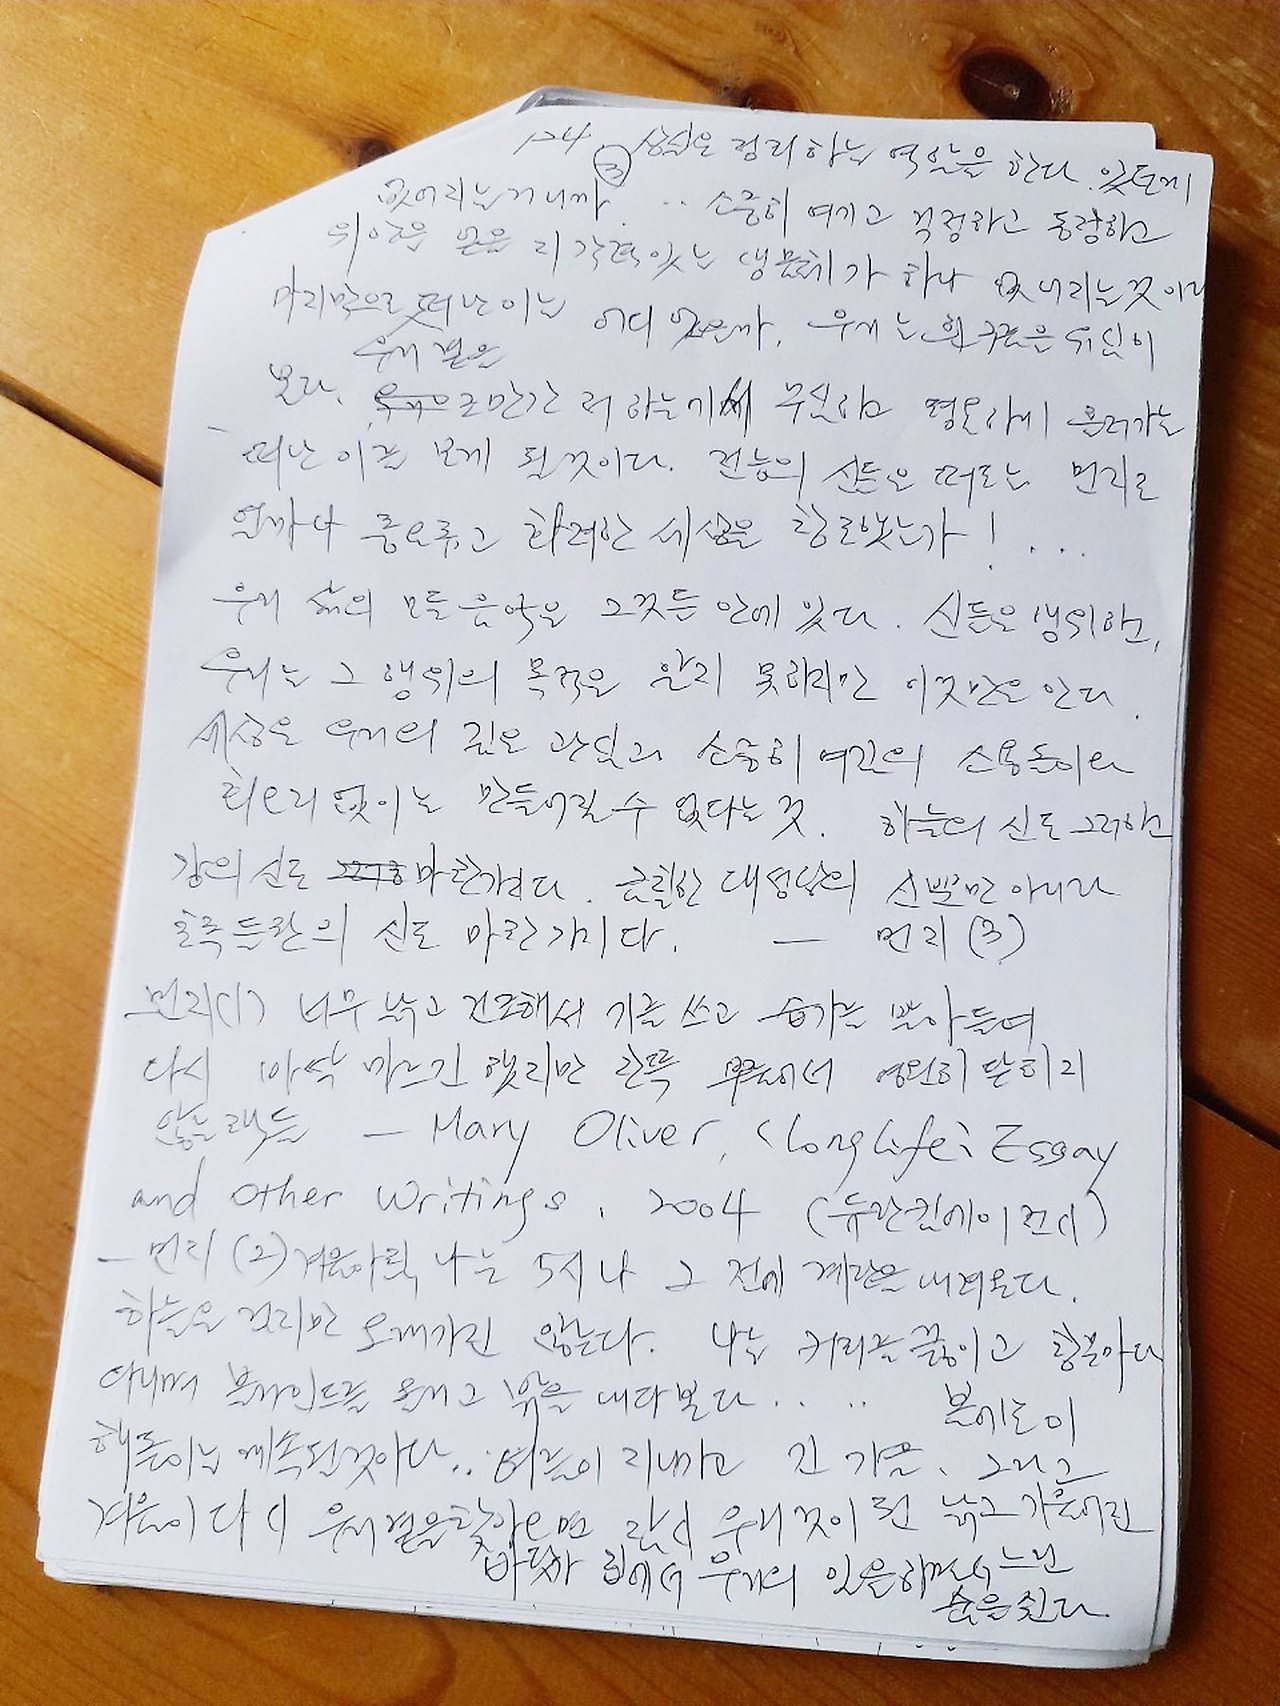 124 ③ 상실은 정리하는 역할을 한다. 있던게
없어지는거니까. .. 소중히 여기고 걱정하고 동행하고
위안을 얻은 지각력있는 생물체가 하나 없어지는것이다
마지막으로 떠난이는 어디 있을까. 우리는 흰구름을 뒤돌아
우리 곁은
보다. 조만간 무심하고 평온하게 흘러가는
떠난 이를 보게 될것이다. 전능의 신들은 떠도는 먼지로
얼마나 풍요롭고 화려한 세상을 창조했는가! ...
우리 삶의 모든 음악은 그것들 안에 있다. 신들은 행위하고,
우리는 그 행위의 목적을 알지 못하지만 이것만은 안다.
세상은 우리의 깊은 관심과 소중히 여김의 소용돌이와
회오리 없이는 만들어질 수 없다는 것. 하늘의 신도 그러하고
강의 신도 마찬가지다. 대성당의 신뿐만 아니라
초록들판의 신도 마찬가지다. — 먼지 (3)
먼지(1) 너무 낡고 건조해서 기를 쓰고 습기를 빨아들여
다시 바싹 마르긴 했지만 한쪽 영원히 닫히지
않는 책들 — Mary Oliver, <long life: Essay
and Other Writings, 2004 (듀란킴에이전시)
— 먼지 (2) 겨울아침, 나는 5시나 그 전에 계단을 내려온다.
하늘은 검지만 오래가진 않는다. 나는 커피를 끓이고 창문마다
다니며 블라인드를 올리고 밖을 내다본다. . . .. 봄에도 이
행동이는 계속될것이다.. 여름이 지나가고 긴 가을, 그리고
겨울이 다시 우리 곁을 찾아오면 다시 우리것이 된 낡고 가름어린
바닷가 집에서 우리의 있음하며서 느린
숨을 쉰다.